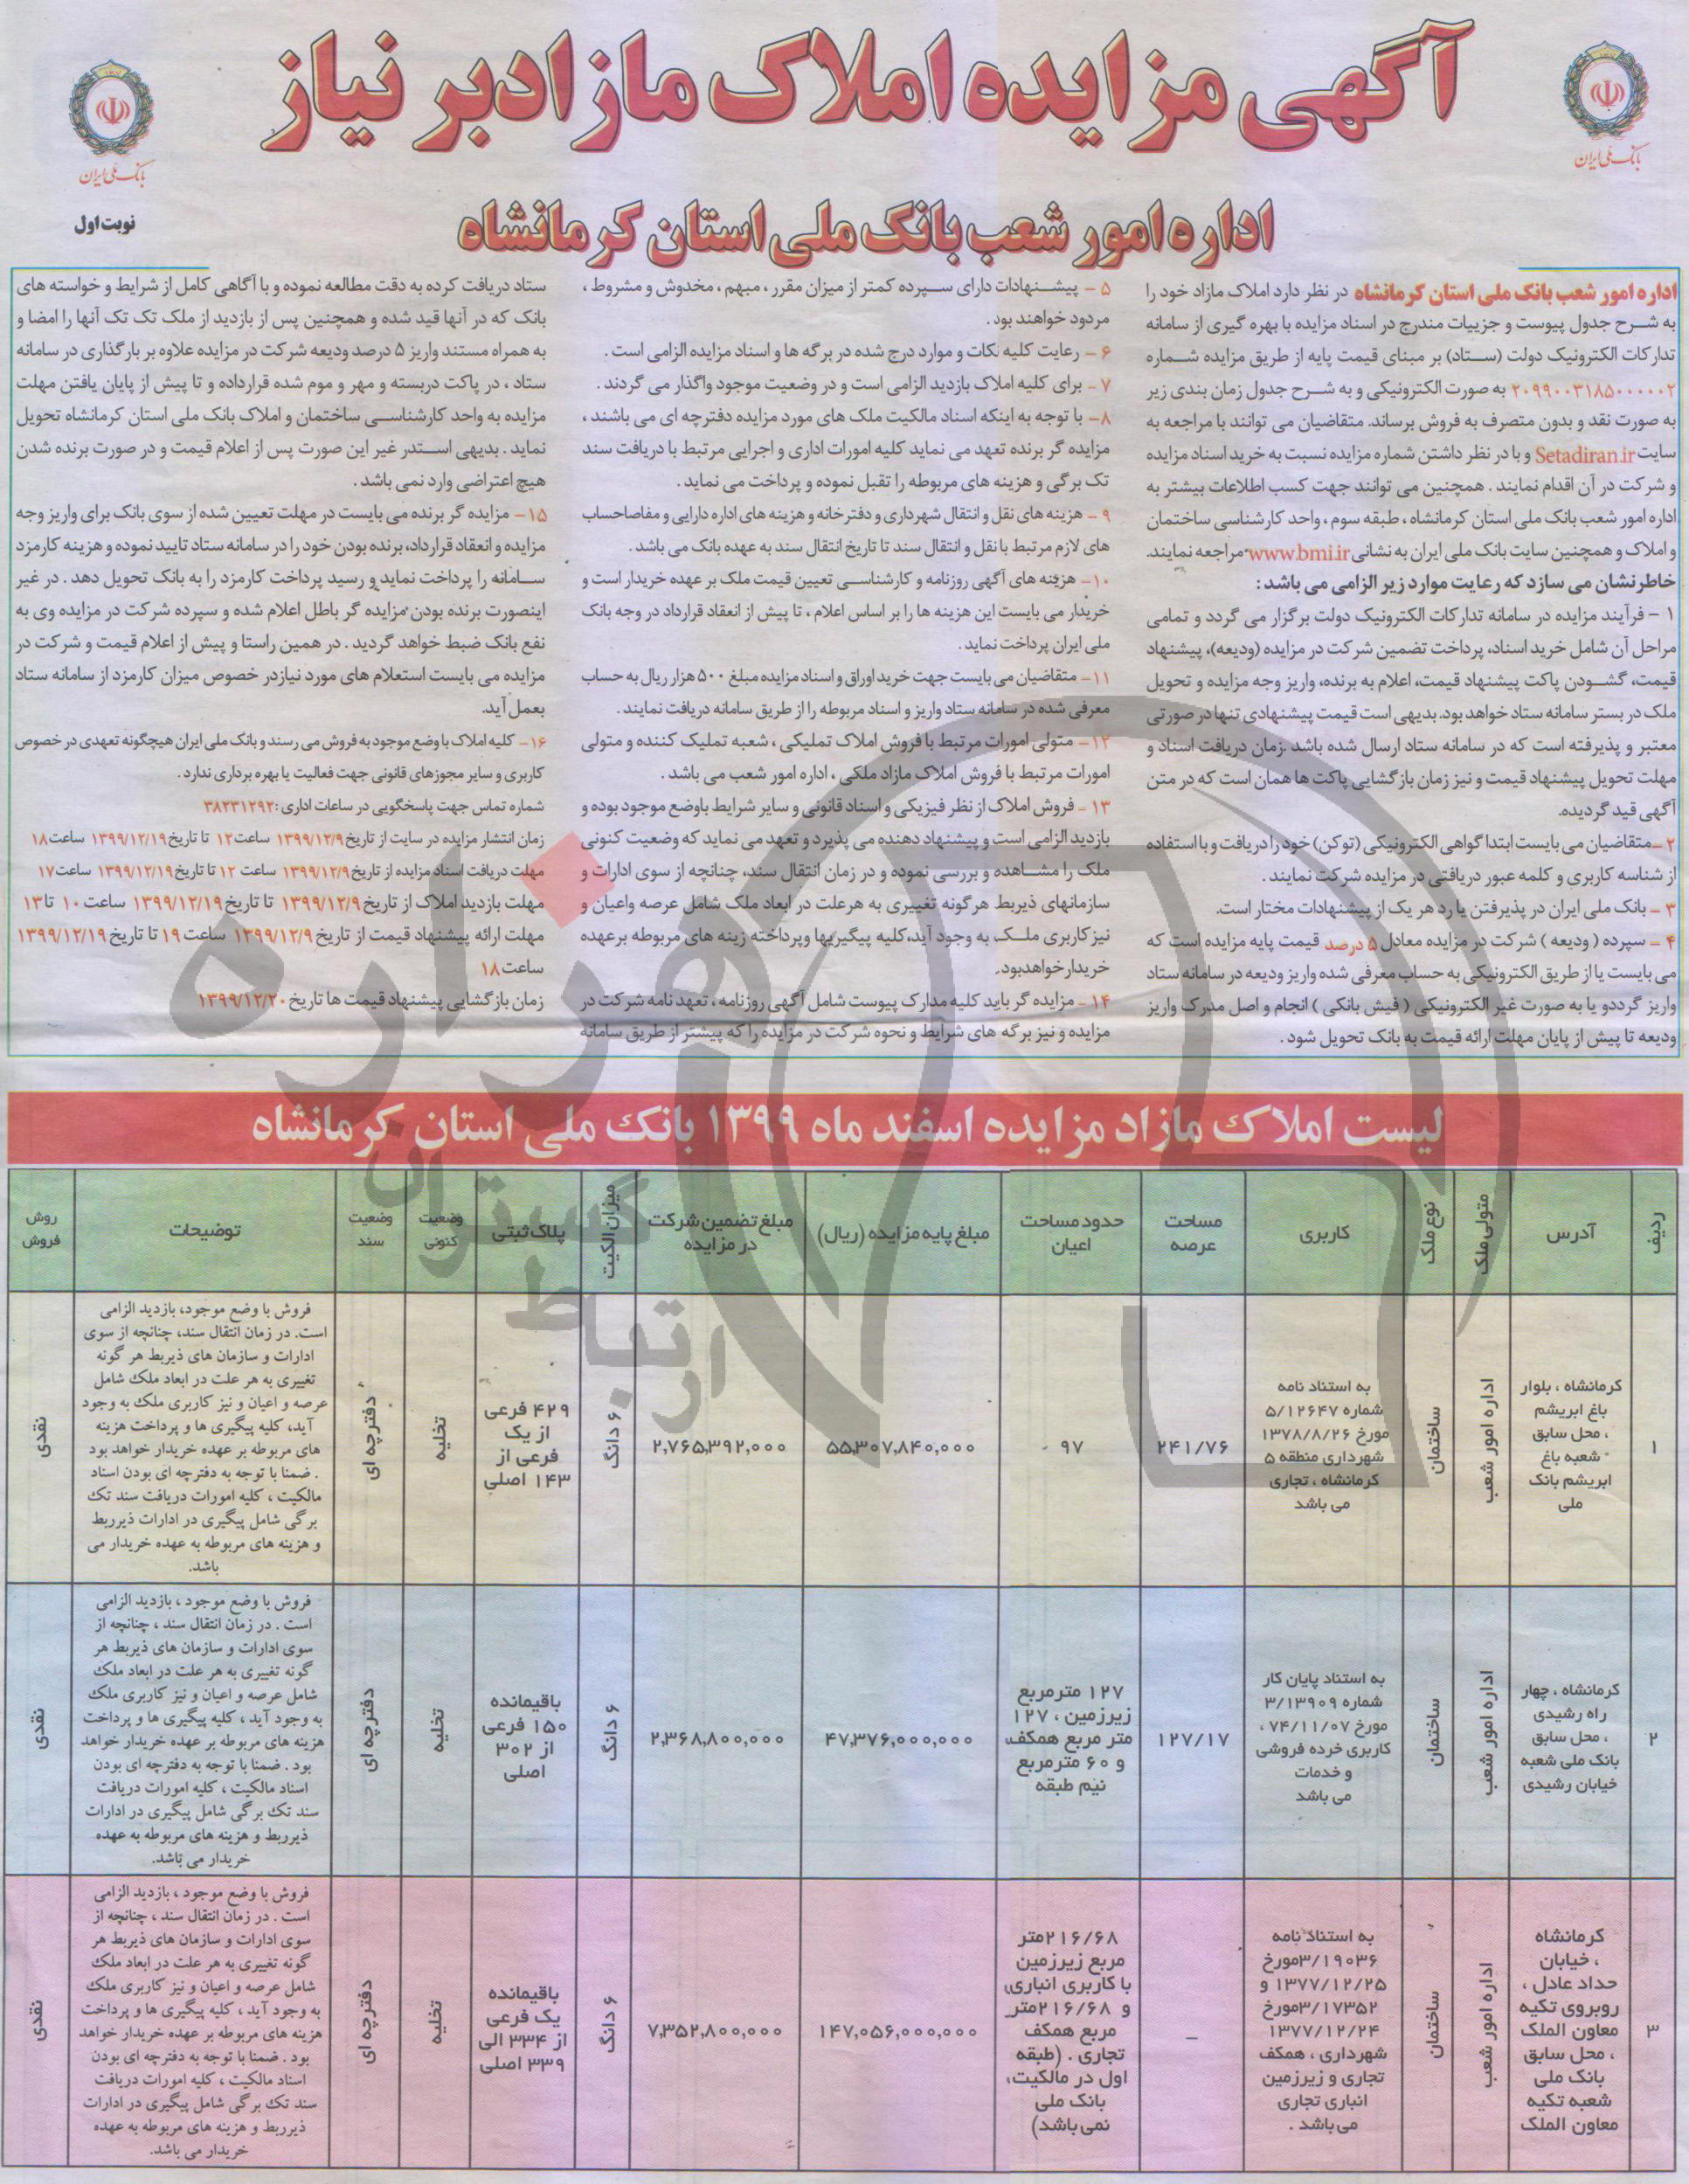 آگهی مزایده املاک مازاد بر نیاز
بانک ملی ایران
بانک ملی ایران
اداره امور شعب بانک ملی استان کرمانشاه
نوبت اول
اداره امور شعب بانک ملی استان کرمانشاه در نظر دارد املاک مازاد خود را
به شرح جدول پیوست و جزییات مندرج در اسناد مزایده با بهره گیری از سامانه
تدارکات الکترونیک دولت (ستاد) بر مبنای قیمت پایه از طریق مزایده شماره
۲۰۹۹۰۰۳۱۸۵۰۰۰۰۰۲ به صورت الکترونیکی و به شرح جدول زمان بندی زیر
به صورت نقد و بدون متصرف به فروش برساند. متقاضیان می توانند با مراجعه به
سایت Setadiran.ir و با در نظر داشتن شماره مزایده نسبت به خرید اسناد مزایده
و شرکت در آن اقدام نمایند . همچنین می توانند جهت کسب اطلاعات بیشتر به
اداره امور شعب بانک ملی استان کرمانشاه ، طبقه سوم ، واحد کارشناسی ساختمان
و املاک و همچنین سایت بانک ملی ایران به نشانی www.bmi.ir مراجعه نمایند.
خاطرنشان می سازد که رعایت موارد زیر الزامی می باشد :
۱ – فرآیند مزایده در سامانه تدارکات الکترونیک دولت برگزار می گردد و تمامی
مراحل آن شامل خرید اسناد، پرداخت تضمین شرکت در مزایده (ودیعه)، پیشنهاد
قیمت، گشودن پاکت پیشنهاد قیمت، اعلام به برنده، واریز وجه مزایده و تحویل
ملک در بستر سامانه ستاد خواهد بود. بدیهی است قیمت پیشنهادی تنها در صورتی
معتبر و پذیرفته است که در سامانه ستاد ارسال شده باشد .زمان دریافت اسناد و
مهلت تحویل پیشنهاد قیمت و نیز زمان بازگشایی پاکت ها همان است که در متن
آگهی قید گردیده.
۲ – متقاضیان می بایست ابتدا گواهی الکترونیکی (توکن) خود را دریافت و با استفاده
از شناسه کاربری و کلمه عبور دریافتی در مزایده شرکت نمایند .
۳ – بانک ملی ایران در پذیرفتن یا رد هر یک از پیشنهادات مختار است.
۴ – سپرده ( ودیعه ) شرکت در مزایده معادل ۵ درصد قیمت پایه مزایده است که
می بایست یا از طریق الکترونیکی به حساب معرفی شده واریز ودیعه در سامانه ستاد
واریز گرددو یا به صورت غیر الکترونیکی ( فیش بانکی ) انجام و اصل مدرک واریز
ودیعه تا پیش از پایان مهلت ارائه قیمت به بانک تحویل شود .
۵ – پیشنهادات دارای سپرده کمتر از میزان مقرر ، مبهم ، مخدوش و مشروط ،
مردود خواهند بود .
۶ – رعایت کلیه نکات و موارد درج شده در برگه ها و اسناد مزایده الزامی است .
۷ – برای کلیه املاک بازدید الزامی است و در وضعیت موجود واگذار می گردند .
۸ – با توجه به اینکه اسناد مالکیت ملک های مورد مزایده دفترچه ای می باشند ،
مزایده گر برنده تعهد می نماید کلیه امورات اداری و اجرایی مرتبط با دریافت سند
تک برگی و هزینه های مربوطه را تقبل نموده و پرداخت می نماید .
۹ – هزینه های نقل و انتقال شهرداری و دفترخانه و هزینه های اداره دارایی و مفاصاحساب
های لازم مرتبط با نقل و انتقال سند تا تاریخ انتقال سند به عهده بانک می باشد .
۱۰ – هزینه های آگهی روزنامه و کارشناسی تعیین قیمت ملک بر عهده خریدار است و
خریدار می بایست این هزینه ها را بر اساس اعلام ، تا پیش از انعقاد قرارداد در وجه بانک
ملی ایران پرداخت نماید .
۱۱ – متقاضیان می بایست جهت خرید اوراق و اسناد مزایده مبلغ ۵۰۰ هزار ریال به حساب
معرفی شده در سامانه ستاد واریز و اسناد مربوطه را از طریق سامانه دریافت نمایند .
۱۲ – متولی امورات مرتبط با فروش املاک تملیکی ، شعبه تملیک کننده و متولی
امورات مرتبط با فروش املاک مازاد ملکی ، اداره امور شعب می باشد .
۱۳ – فروش املاک از نظر فیزیکی و اسناد قانونی و سایر شرایط باوضع موجود بوده و
بازدید الزامی است و پیشنهاد دهنده می پذیرد و تعهد می نماید که وضعیت کنونی
ملک را مشاهده و بررسی نموده و در زمان انتقال سند، چنانچه از سوی ادارات و
سازمانهای ذیربط هرگونه تغییری به هرعلت در ابعاد ملک شامل عرصه واعیان و
نیز کاربری ملک به وجود آید، کلیه پیگیریها وپرداخته زینه های مربوطه برعهده
خریدار خواهد بود.
۱۴ – مزایده گر باید کلیه مدارک پیوست شامل آگهی روزنامه ، تعهد نامه شرکت در
مزایده و نیز برگه های شرایط و نحوه شرکت در مزایده را که پیشتر از طریق سامانه
ستاد دریافت کرده به دقت مطالعه نموده و با آگاهی کامل از شرایط و خواسته های
بانک که در آنها قید شده و همچنین پس از بازدید از ملک تک تک آنها را امضا و
به همراه مستند واریز ۵ درصد ودیعه شرکت در مزایده علاوه بر بارگذاری در سامانه
ستاد ، در پاکت دربسته و مهر و موم شده قرارداده و تا پیش از پایان یافتن مهلت
مزایده به واحد کارشناسی ساختمان و املاک بانک ملی استان کرمانشاه تحویل
نماید . بدیهی استدر غیر این صورت پس از اعلام قیمت و در صورت برنده شدن
هیچ اعتراضی وارد نمی باشد .
۱۵ – مزایده گر برنده می بایست در مهلت تعیین شده از سوی بانک برای واریز وجه
مزایده و انعقاد قرارداد، برنده بودن خود را در سامانه ستاد تایید نموده و هزینه کارمزد
سامانه را پرداخت نماید و رسید پرداخت کارمزد را به بانک تحویل دهد . در غیر
اینصورت برنده بودن مزایده گر باطل اعلام شده و سپرده شرکت در مزایده وی به
نفع بانک ضبط خواهد گردید . در همین راستا و پیش از اعلام قیمت و شرکت در
مزایده می بایست استعلام های مورد نیازدر خصوص میزان کارمزد از سامانه ستاد
بعمل آید.
۱۶ – کلیه املاک با وضع موجود به فروش می رسند و بانک ملی ایران هیچگونه تعهدی در خصوص
کاربری و سایر مجوزهای قانونی جهت فعالیت یا بهره برداری ندارد .
شماره تماس جهت پاسخگویی در ساعات اداری : ۳۸۲۳۱۲۹۲
زمان انتشار مزایده در سایت از تاریخ ۱۳۹۹/۱۲/۹ ساعت ۱۲ تا تاریخ ۱۳۹۹/۱۲/۱۹ ساعت ۱۸
مهلت دریافت اسناد مزایده از تاریخ ۱۳۹۹/۱۲/۹ ساعت ۱۲ تا تاریخ ۱۳۹۹/۱۲/۱۹ ساعت ۱۷
مهلت بازدید املاک از تاریخ ۱۳۹۹/۱۲/۹ تا تاریخ ۱۳۹۹/۱۲/۱۹ ساعت ۱۰ تا ۱۳
مهلت ارائه پیشنهاد قیمت از تاریخ ۱۳۹۹/۱۲/۹ ساعت ۱۹ تا تاریخ ۱۳۹۹/۱۲/۱۹
ساعت ۱۸
زمان بازگشایی پیشنهاد قیمت ها تاریخ ۱۳۹۹/۱۲/۲۰
هزاره
گستران
ارتباط
لیست املاک مازاد مزایده اسفند ماه ۱۳۹۹ بانک ملی استان کرمانشاه
ردیف
آدرس
متولی ملک
نوع ملک
کاربری
مساحت
عرصه
حدود مساحت
اعیان
مبلغ پایه مزایده (ریال)
مبلغ تضمین شرکت
در مزایده
میزان الکیت
پلاک ثبتی
وضعیت
کنونی
وضعیت
سند
توضیحات
روش
فروش
۱
کرمانشاه ، بلوار
باغ ابریشم
، محل سابق
شعبه باغ
ابریشم بانک
ملی
اداره امور شعب
ساختمان
به استناد نامه
شماره ۵/۱۲۶۴۷
مورخ ۱۳۷۸/۸/۲۶
شهرداری منطقه ۵
کرمانشاه ، تجاری
می باشد
۲۴۱/۷۶
۹۷
۵۵,۳۰۷,۸۴۰,۰۰۰
۲,۷۶۵,۳۹۲,۰۰۰
۶ دانگ
۴۲۹ فرعی
از یک
فرعی از
۱۴۳ اصلی
تخلیه
دفترچه ای
فروش با وضع موجود، بازدید الزامی
است. در زمان انتقال سند، چنانچه از سوی
ادارات و سازمان های ذیربط هر گونه
تغییری به هر علت در ابعاد ملک شامل
عرصه و اعیان و نیز کاربری ملک به وجود
آید، کلیه پیگیری ها و پرداخت هزینه
های مربوطه بر عهده خریدار خواهد بود
. ضمنا با توجه به دفترچه ای بودن اسناد
مالکیت ، کلیه امورات دریافت سند تک
برگی شامل پیگیری در ادارات ذیرربط
و هزینه های مربوطه به عهده خریدار می
باشد.
نقدی
۲
کرمانشاه ، چهار
راه رشیدی
، محل سابق
بانک ملی شعبه
خیابان رشیدی
اداره امور شعب
ساختمان
به استناد پایان کار
شماره ۳/۱۳۹۰۹
مورخ ۷۴/۱۱/۰۷ ،
کاربری خرده فروشی
و خدمات
می باشد
۱۲۷/۱۷
۱۲۷ مترمربع
زیرزمین ، ۱۲۷
متر مربع همکف
و ۶۰ مترمربع
نیم طبقه
۴۷,۳۷۶,۰۰۰,۰۰۰
۲,۳۶۸,۸۰۰,۰۰۰
۶ دانگ
باقیمانده
۱۵۰ فرعی
از ۳۰۲
اصلی
تخلیه
دفترچه ای
فروش با وضع موجود ، بازدید الزامی
است . در زمان انتقال سند ، چنانچه از
سوی ادارات و سازمان های ذیربط هر
گونه تغییری به هر علت در ابعاد ملک
شامل عرصه و اعیان و نیز کاربری ملک
به وجود آید ، کلیه پیگیری ها و پرداخت
هزینه های مربوطه بر عهده خریدار خواهد
بود . ضمنا با توجه به دفترچه ای بودن
اسناد مالکیت ، کلیه امورات دریافت
سند تک برگی شامل پیگیری در ادارات
ذیرربط و هزینه های مربوطه به عهده
خریدار می باشد.
نقدی
۳
کرمانشاه
، خیابان
حداد عادل ،
روبروی تکیه
معاون الملک
، محل سابق
بانک ملی
شعبه تکیه
معاون الملک
اداره امور شعب
ساختمان
به استناد نامه
۳/۱۹۰۳۶مورخ
۱۳۷۷/۱۲/۲۵ و
۳/۱۷۳۵۲مورخ
۱۳۷۷/۱۲/۲۴
شهرداری ، همکف
تجاری و زیرزمین
انباری تجاری
می باشد .
–
۲۱۶/۶۸متر
مربع زیرزمین
با کاربری انباری
و ۲۱۶/۶۸متر
مربع همکف
تجاری . (طبقه
اول در مالکیت
بانک ملی
نمی باشد)
۱۴۷,۰۵۶,۰۰۰,۰۰۰
۷,۳۵۲,۸۰۰,۰۰۰
۶ دانگ
باقیمانده
یک فرعی
از ۳۳۴ الی
۳۳۹ اصلی
تخلیه
دفترچه ای
فروش با وضع موجود ، بازدید الزامی
است . در زمان انتقال سند ، چنانچه از
سوی ادارات و سازمان های ذیربط هر
گونه تغییری به هر علت در ابعاد ملک
شامل عرصه و اعیان و نیز کاربری ملک
به وجود آید ، کلیه پیگیری ها و پرداخت
هزینه های مربوطه بر عهده خریدار خواهد
بود . ضمنا با توجه به دفترچه ای بودن
اسناد مالکیت ، کلیه امورات دریافت
سند تک برگی شامل پیگیری در ادارات
ذیرربط و هزینه های مربوطه به عهده
خریدار می باشد.
نقدی